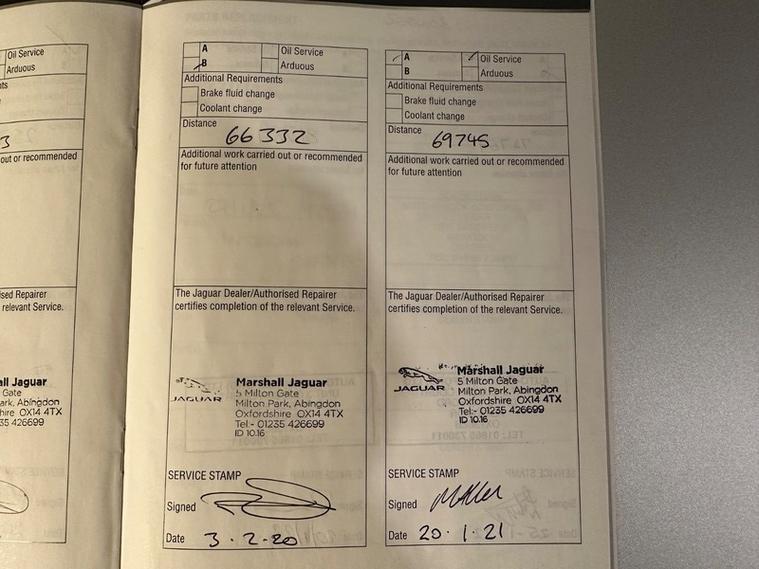 Oil Service
Arduous
nts
3
out or recommended
ised Repairer
relevant Service.
all Jaguar
Gate
ark, Abingdon
hire OX14 4TX
35 426699
A
Oil Service
B
Arduous
Additional Requirements
Brake fluid change
Coolant change
Distance
66332
Additional work carried out or recommended
for future attention
The Jaguar Dealer/Authorised Repairer
certifies completion of the relevant Service.
JAGUAR
Marshall Jaguar
5 Milton Gate
Milton Park, Abingdon
Oxfordshire OX14 4TX
Tel:- 01235 426699
ID 10.16
SERVICE STAMP
Signed
Date 3.2.20
A
Oil Service
B
Arduous
Additional Requirements
Brake fluid change
Coolant change
Distance
69745
Additional work carried out or recommended
for future attention
The Jaguar Dealer/Authorised Repairer
certifies completion of the relevant Service.
JAGUAR
Marshall Jaguar
5 Milton Gate
Milton Park, Abingdon
Oxfordshire OX14 4TX
Tel:- 01235 426699
ID 10.16
SERVICE STAMP
Signed
Date 20.1.21